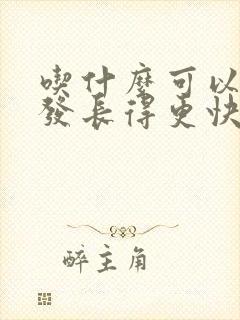 喫什麼可以
發長得更快
醉主角